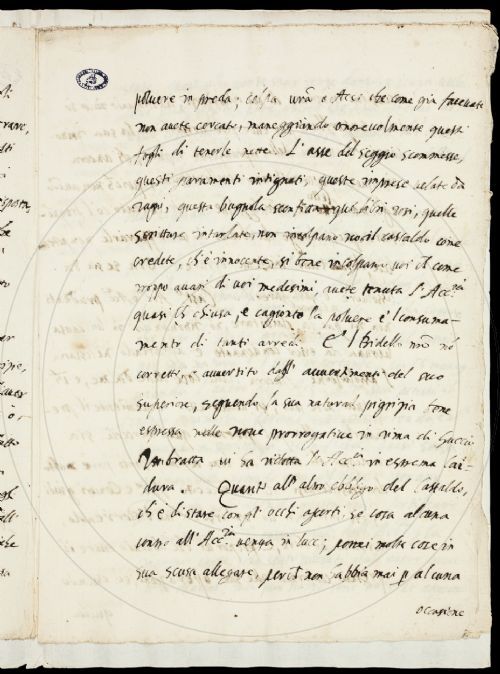 poluere in preda; colpa urã o Acc.ci che come già faceuate
non auete cercato, maneggiando onoreuolmente questi
fogli di tenerle nette. L'asse del seggio scommesse,
questi paramenti intignati, queste imprese uelate da
ragni, questa bugnola sconfitta, que' libri rosi, quelle
scritture intarlate, non incolpano no il castaldo come
credete, ch'è innocente, si bene incolpano uoi che come
troppo auari di uoi medesimi, auete tenuta l'Acc.ia
quasi che chiusa, e cagionto la poluere e 'l consuma-
mento di tanti arredi. E 'l Bidello nr̃o nõ
corretto, e auuertito dagl' auuertimenti del suo
superiore, seguendo la sua natural pigrizia bene
espressa nelle noue prorrogatiue in rima di Guccio
Imbratta ui ha ridotta l'Acc.ia in estrema lai-
dura. Quanto all'altro obbligo del Castaldo,
ch'è di stare con gl'occhi aperti se cosa alcuna
contro all'Acc.ia uenga in luce; potrei molte cose in
sua scusa allegare, perch'ei non habbia mai p alcuna
occasione